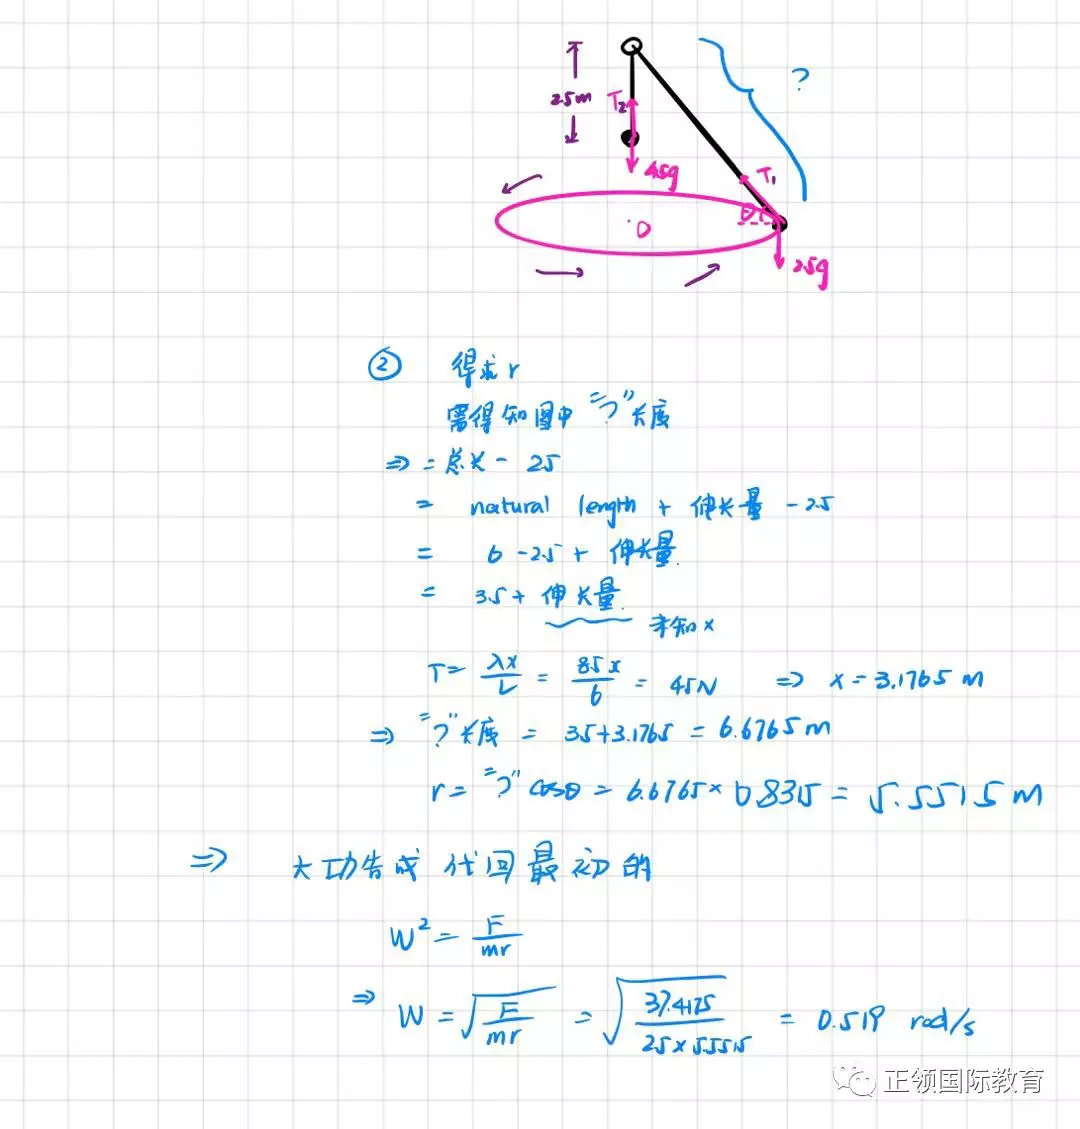 2.5m
T₂
4.5g
?
T₁
θ
O
2.5g
② 得求r
需得知图中"?"长度
⇒ = 总长 - 2.5
= natural length + 伸长量 - 2.5
= 6 - 2.5 + 伸长量
= 3.5 + 伸长量
未知x
T = λx/L = 85x/6 = 45N ⇒ x = 3.1765 m
⇒ "?"长度 = 3.5+3.1765 = 6.6765m
r = "?" cosθ = 6.6765 × 0.8315 = 5.5515 m
⇒ 大功告成 代回最初的
W² = F/mr
⇒ W = √(F/mr) = √(37.4175/(2.5×5.5515)) = 0.519 rad/s
正领国际教育